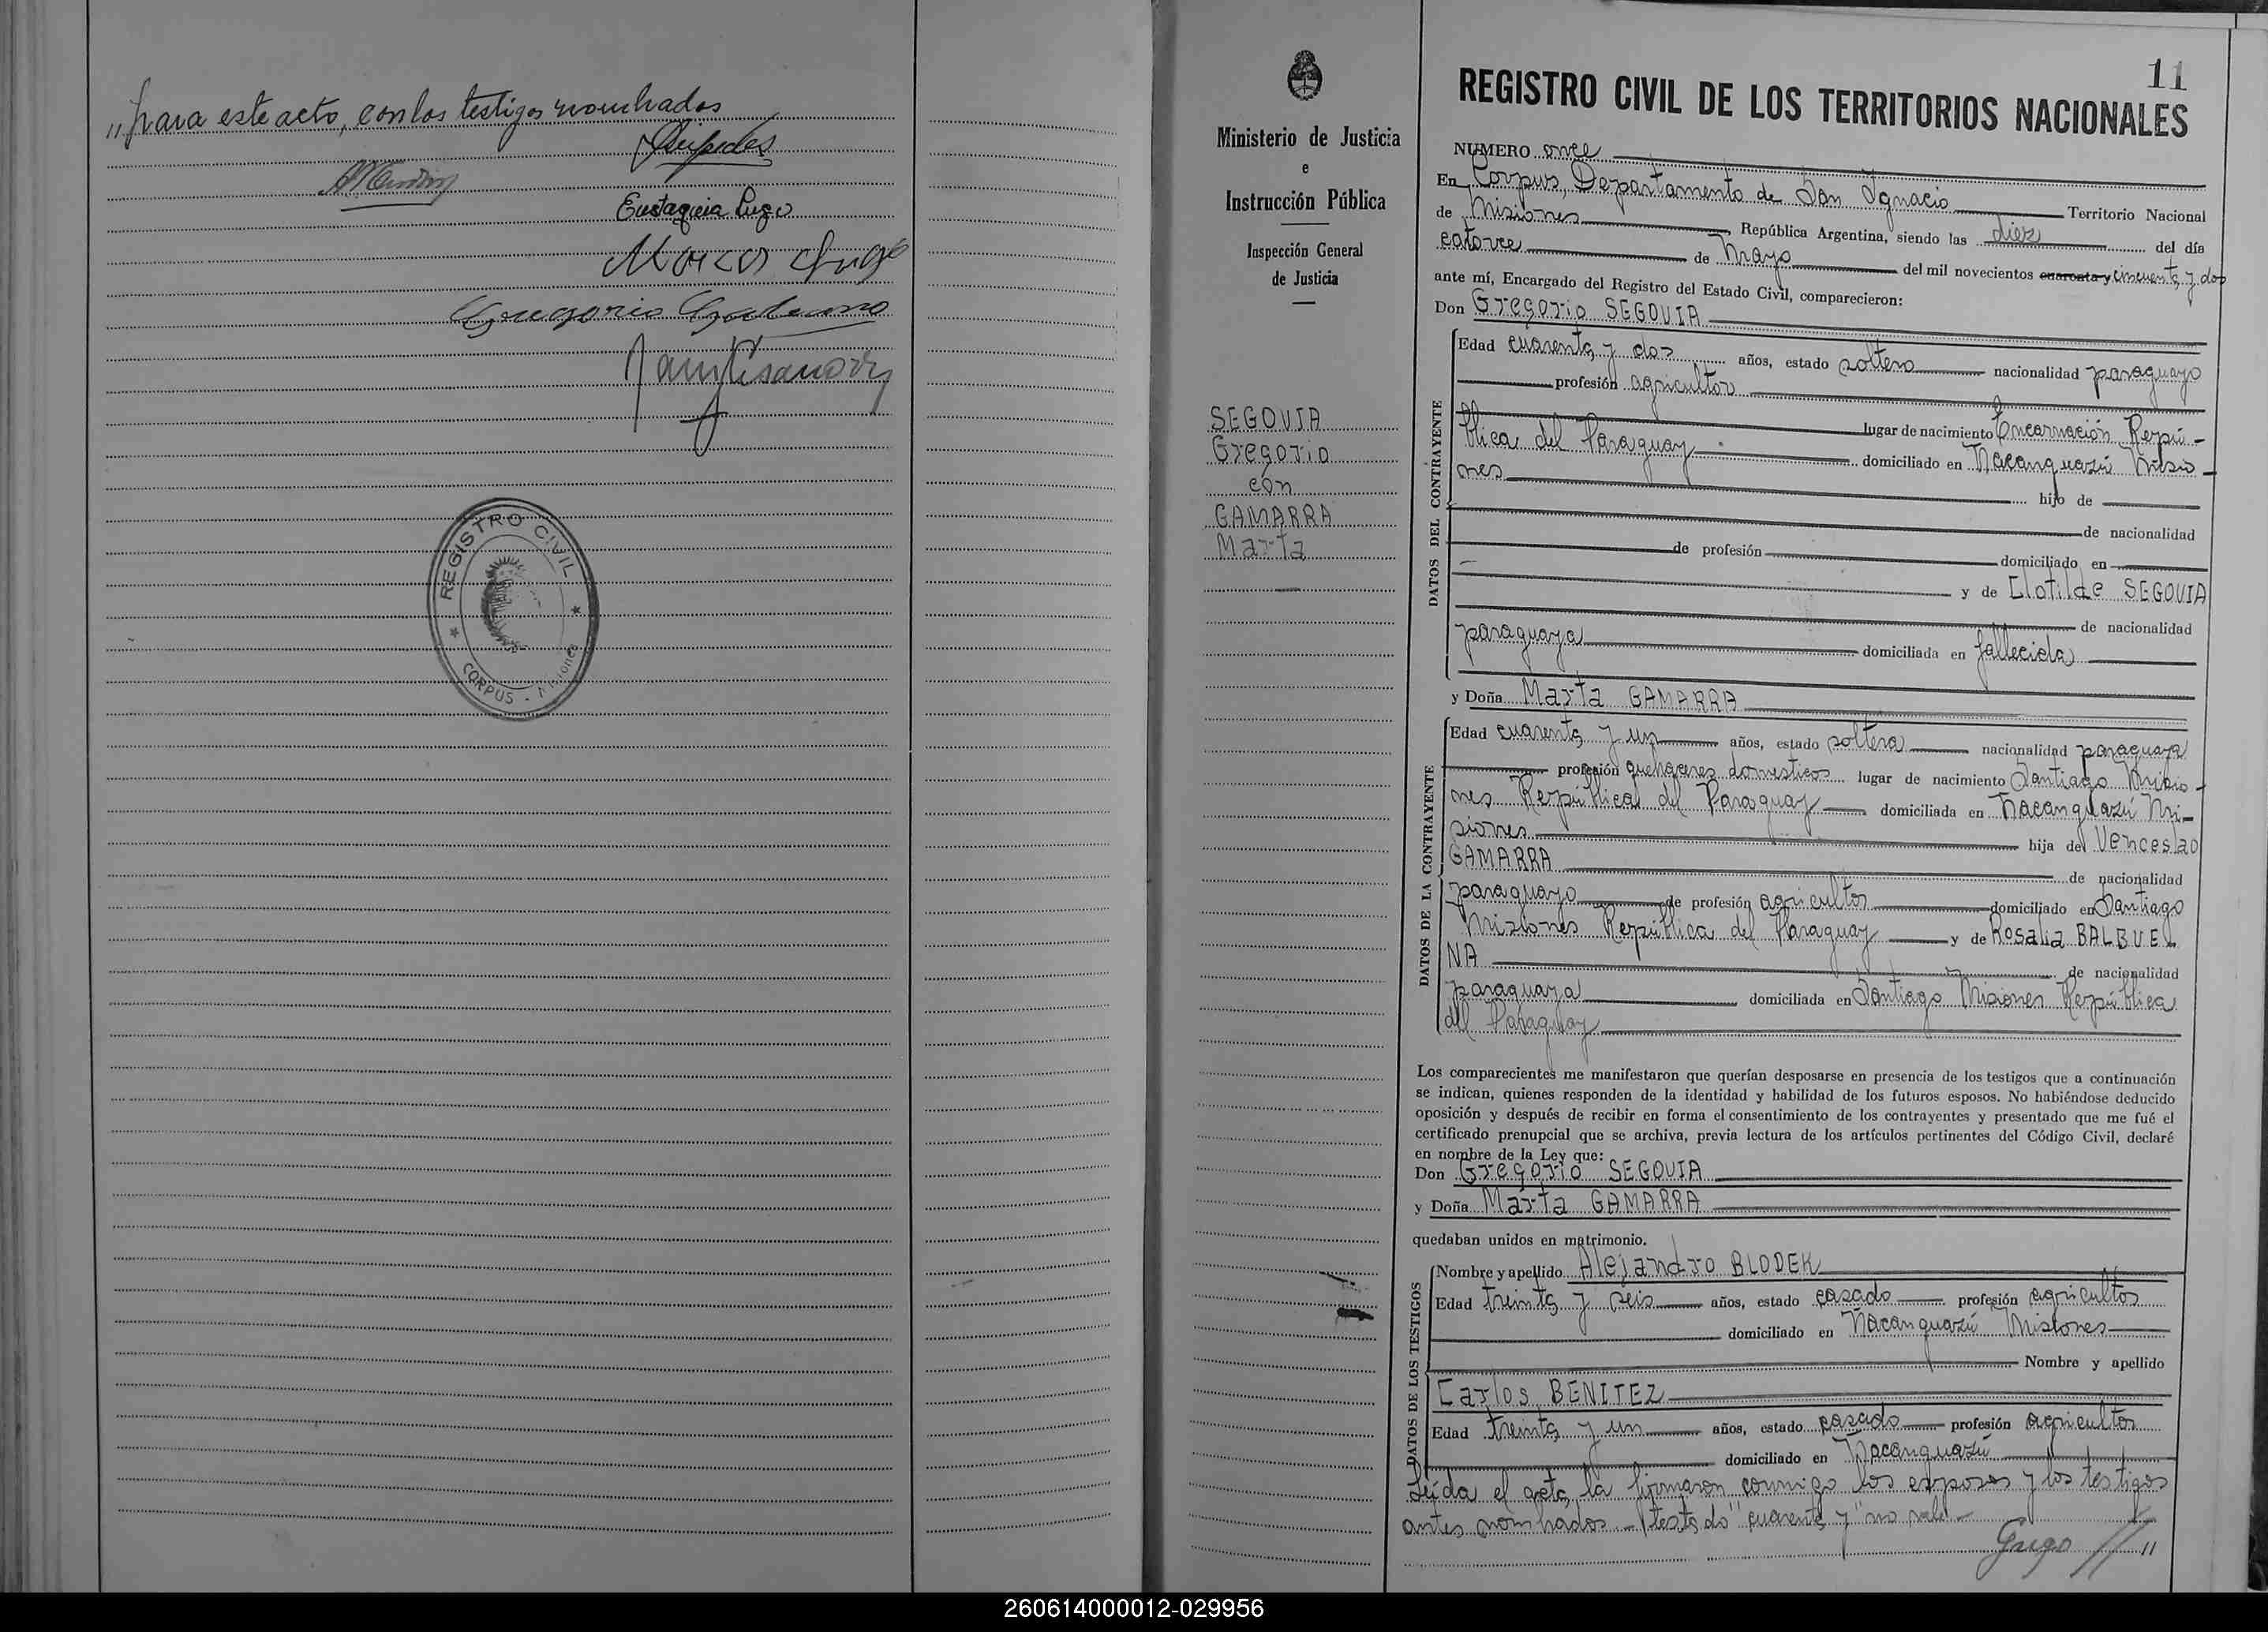 „para este acto, con los testigos nombrados
Eustaquia Lugo
Marcos Lugo
Gregorio
REGISTRO CIVIL
CORPUS - Misiones
Ministerio de Justicia
e
Instrucción Pública
Inspección General
de Justicia
SEGOVIA
Gregorio
con
GAMARRA
Marta
11
REGISTRO CIVIL DE LOS TERRITORIOS NACIONALES
NUMERO once
En Corpus, Departamento de San Ignacio Territorio Nacional
de Misiones República Argentina, siendo las diez del día
catorce de Mayo del mil novecientos cuarenta y cincuenta y dos
ante mí, Encargado del Registro del Estado Civil, comparecieron:
Don Gregorio SEGOVIA
DATOS DEL CONTRAYENTE
Edad cuarenta y dos años, estado soltero nacionalidad paraguayo
profesión agricultor
lugar de nacimiento Encarnación Repú-
blica del Paraguay domiciliado en Ñacanguazú Misio-
nes hijo de
de nacionalidad
de profesión domiciliado en
y de Clotilde SEGOVIA
de nacionalidad
paraguaya domiciliada en fallecida
y Doña Marta GAMARRA
DATOS DE LA CONTRAYENTE
Edad cuarenta y un años, estado soltera nacionalidad paraguaya
profesión quehaceres domesticos lugar de nacimiento Santiago Misio-
nes República del Paraguay domiciliada en Ñacanguazú Mi-
siones hija de Venceslao
GAMARRA de nacionalidad
paraguayo de profesión agricultor domiciliado en Santiago
Misiones República del Paraguay y de Rosalia BALBUE-
NA de nacionalidad
paraguaya domiciliada en Santiago Misiones República
del Paraguay
Los comparecientes me manifestaron que querían desposarse en presencia de los testigos que a continuación
se indican, quienes responden de la identidad y habilidad de los futuros esposos. No habiéndose deducido
oposición y después de recibir en forma el consentimiento de los contrayentes y presentado que me fué el
certificado prenupcial que se archiva, previa lectura de los artículos pertinentes del Código Civil, declaré
en nombre de la Ley que:
Don Gregorio SEGOVIA
y Doña Marta GAMARRA
quedaban unidos en matrimonio.
DATOS DE LOS TESTIGOS
Nombre y apellido Alejandro BLODEK
Edad treinta y seis años, estado casado profesión agricultor
domiciliado en Ñacanguazú Misiones
Nombre y apellido
Carlos BENITEZ
Edad treinta y un años, estado casado profesión agricultor
domiciliado en Ñacanguazú
Leída el acta, la firmaron conmigo los esposos y los testigos
antes nombrados - testado "cuarenta y" no vale -
260614000012-029956